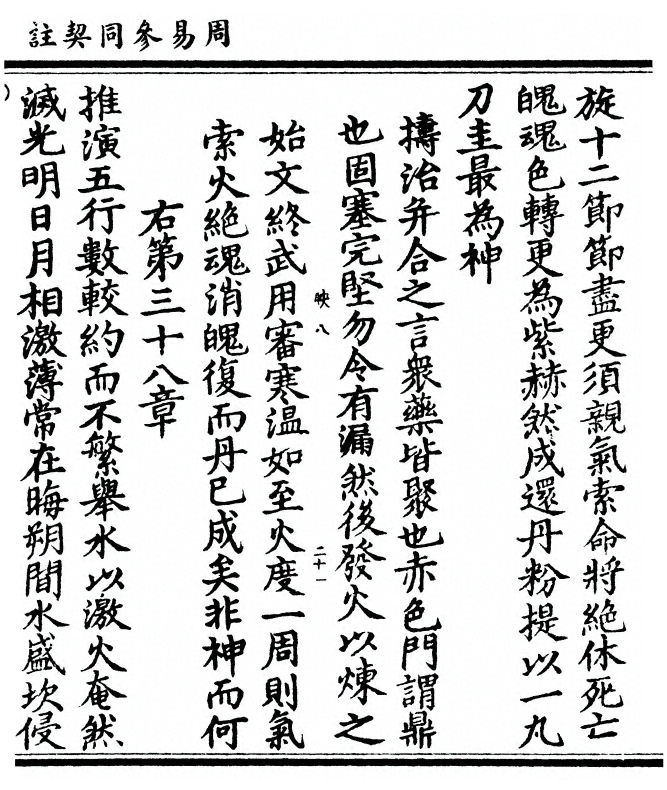 周易參同契註
旋十二節節盡更須親氣索命將絕休死亡
魄魂色轉更為紫赫然成還丹粉提以一丸
刀圭最為神
擣治并合之言衆藥皆聚也赤色門謂鼎
也固塞完堅勿令有漏然後發火以煉之
映八
二十一
始文終武用審寒温如至火度一周則氣
索火絕魂消魄復而丹已成矣非神而何
右第三十八章
推演五行數較約而不繁舉水以激火奄然
滅光明日月相激薄常在晦朔間水盛坎侵